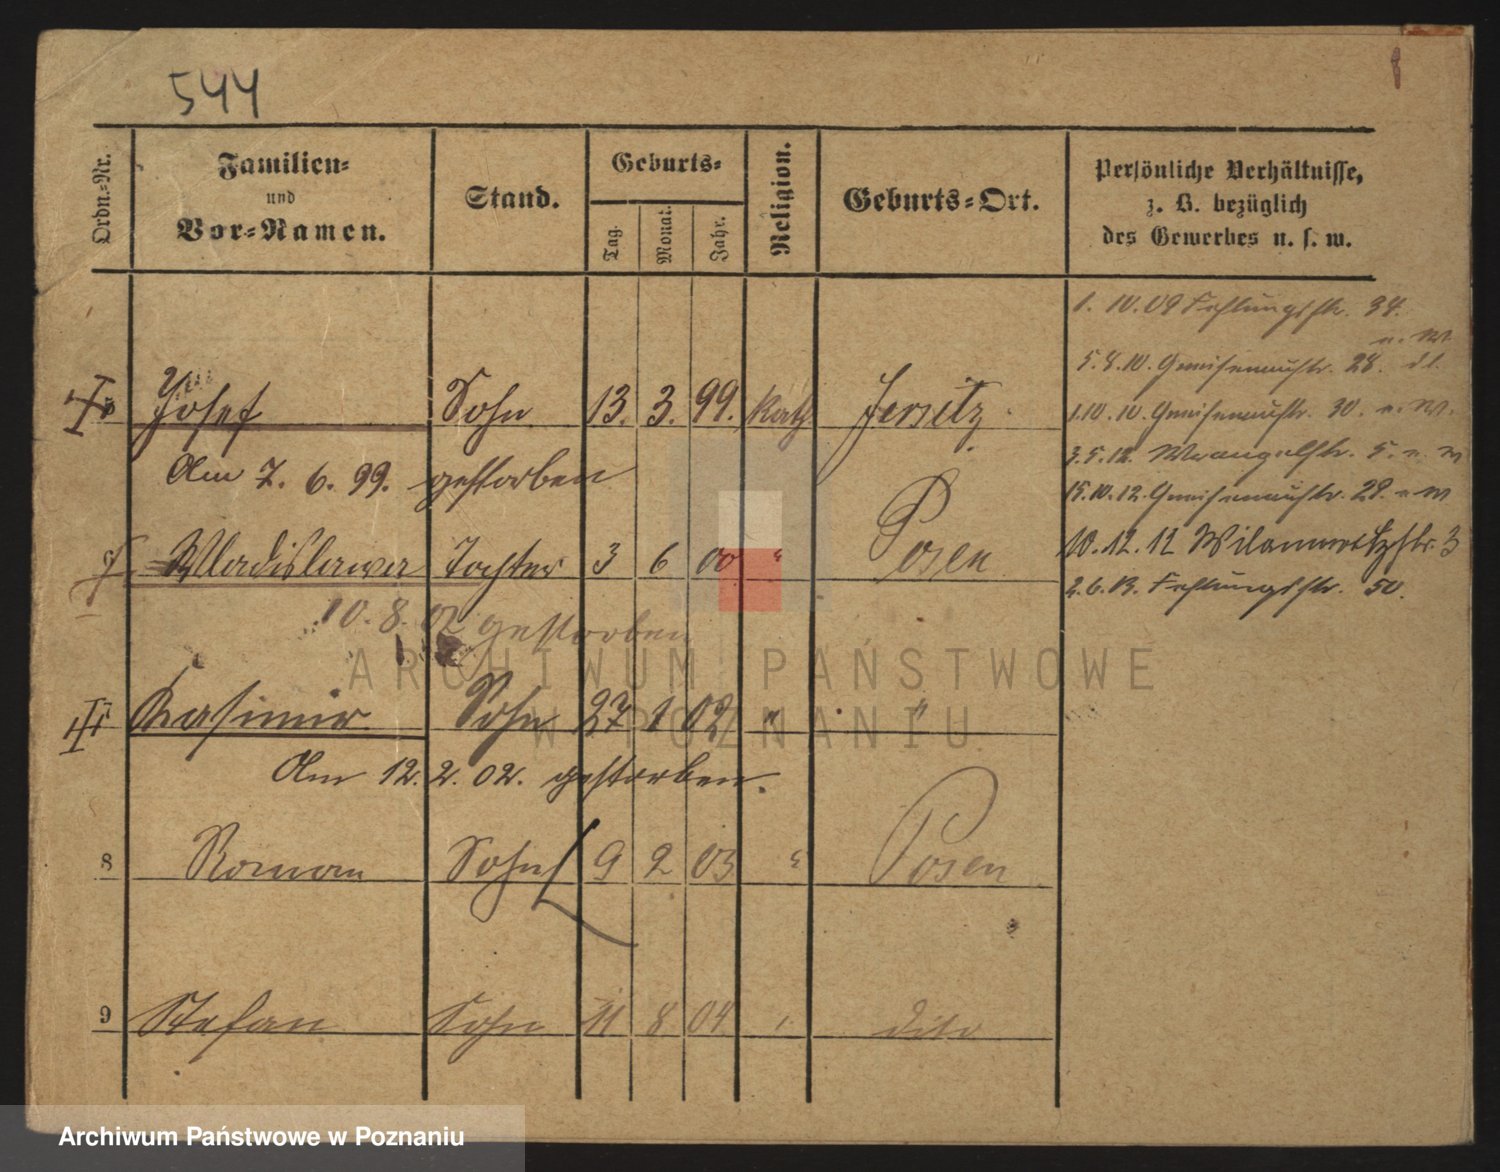 544
Ordn.-Nr.
Familien-
und
Vor-Namen.
Stand.
Geburts-
Tag.
Monat.
Jahr.
Religion.
Geburts-Ort.
Persönliche Verhältnisse,
z. B. bezüglich
des Gewerbes u. s. w.
1. 10. 09 Fehlungsstr. 34.
n. W.
5. 8. 10. Gneisenaustr. 28.
Josef Sohn 13. 3. 99. Kath Jersitz.
1. 10. 10 Gneisenaustr. 30. n. W.
3. 5. 12. Wrangelstr. 5. n. W
Am 7. 6. 99. gestorben
15. 10. 12. Gneisenaustr. 28. n W
Wladislawa Tochter 3 6 00 " Posen
10. 12. 12 3
2. 6. 13. Fehlungsstr. 50.
10. 8. 02 gestorben
Kasimir Sohn 27 1 02 " "
Am 12. 2. 02. gestorben.
8 Roman Sohn 9 2 03 " Posen
9 Stefan Sohn 11 8 04 dito
ARCHIWUM PAŃSTWOWE
W POZNANIU
Archiwum Państwowe w Poznaniu